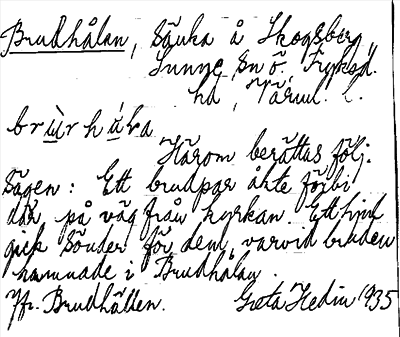 Brudhålan, sänka å Skogsberg,
Sunne sn ö. Fryksd.
hd, Värml. l.
brùrhá̀ɫa
Härom berättas följ.
sägen: Ett brudpar åkte förbi
där på väg från kyrkan. Ett hjul
gick sönder för dem, varvid bruden
hamnade i Brudhålan.
Jfr. Brudhällen. Greta Hedin 1935